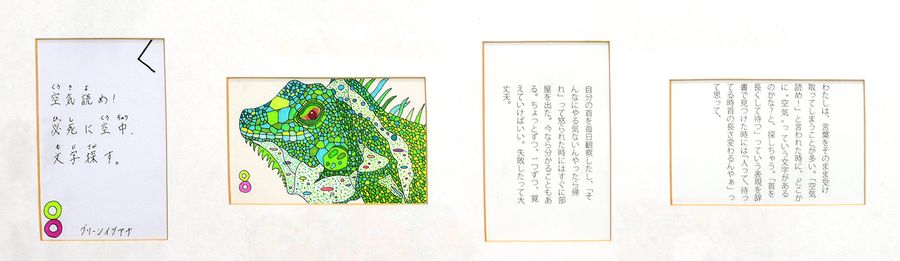 くうきよ
空気読め!
ひっし くうちゅう
必死に空中、
もじさが
文字探す。
グリーンイグアナ
わたしは、言葉をそのまま受け
取ってしまうことが多い。「空気
読め！」と言われた時に、どこか
に〝空気〟っていう文字がある
のかな？と、探しちゃう。「首を
長くして待つ」っていう表現を辞
書で見つけた時には「人って、待っ
てる時首の長さ変わるんやぁ」っ
て思って、
自分の首を毎日観察したし、「そ
んなにやる気ないんやったら帰
れ」って怒られた時にはすぐに部
屋を出た。今なら分かることもあ
る。ちょっとずつ、一つずつ、覚
えていけばいい。失敗したって大
丈夫。